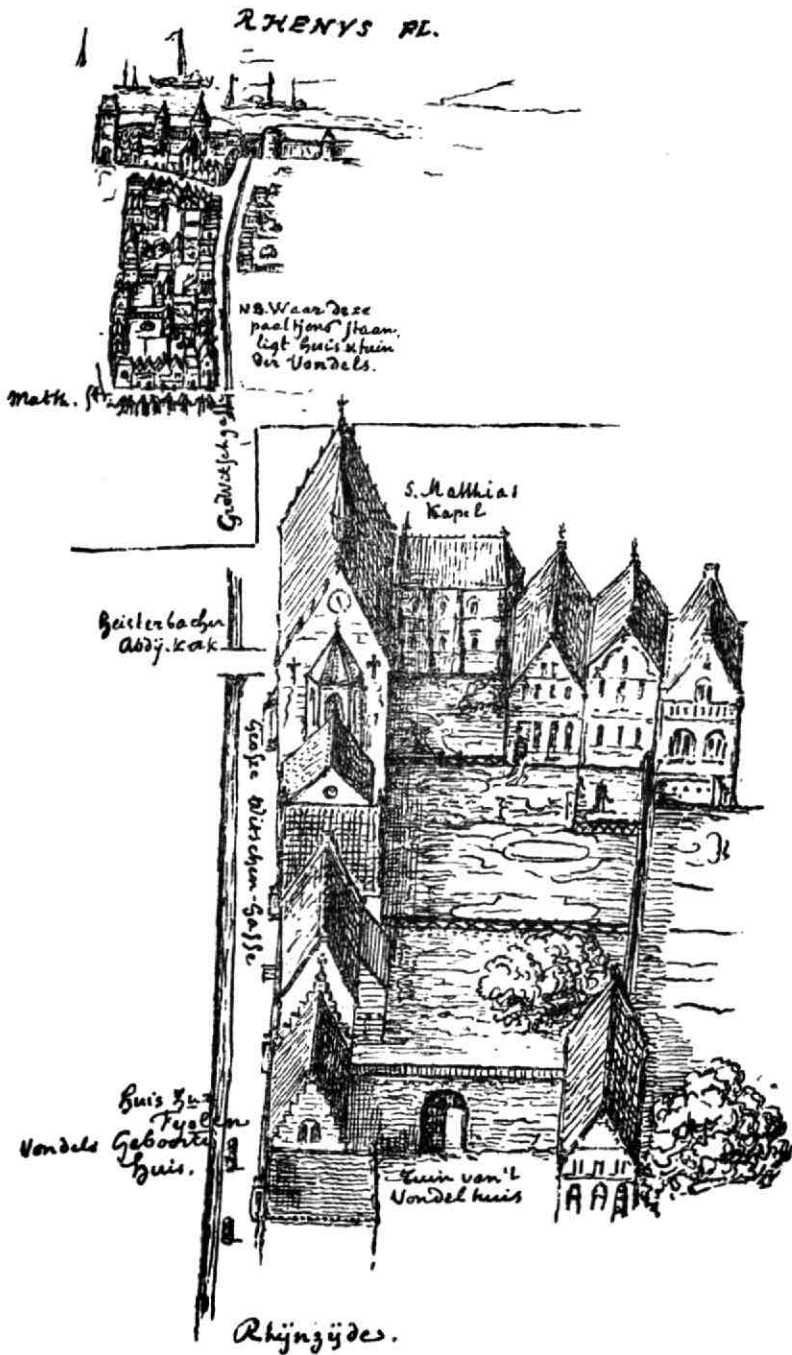 RHENVS FL.
NB. Waar deze
paaltjens staan,
ligt huis & tuin
der Vondels.
Math. Str.
S. Matthias
Kapel
Heisterbacher
Abdij.
Grosse Witschen-Gasse
Huis Zur
Fyolen
Vondels Geboorte
huis.
Tuin van't
Vondelhuis
Rhijnzijde.